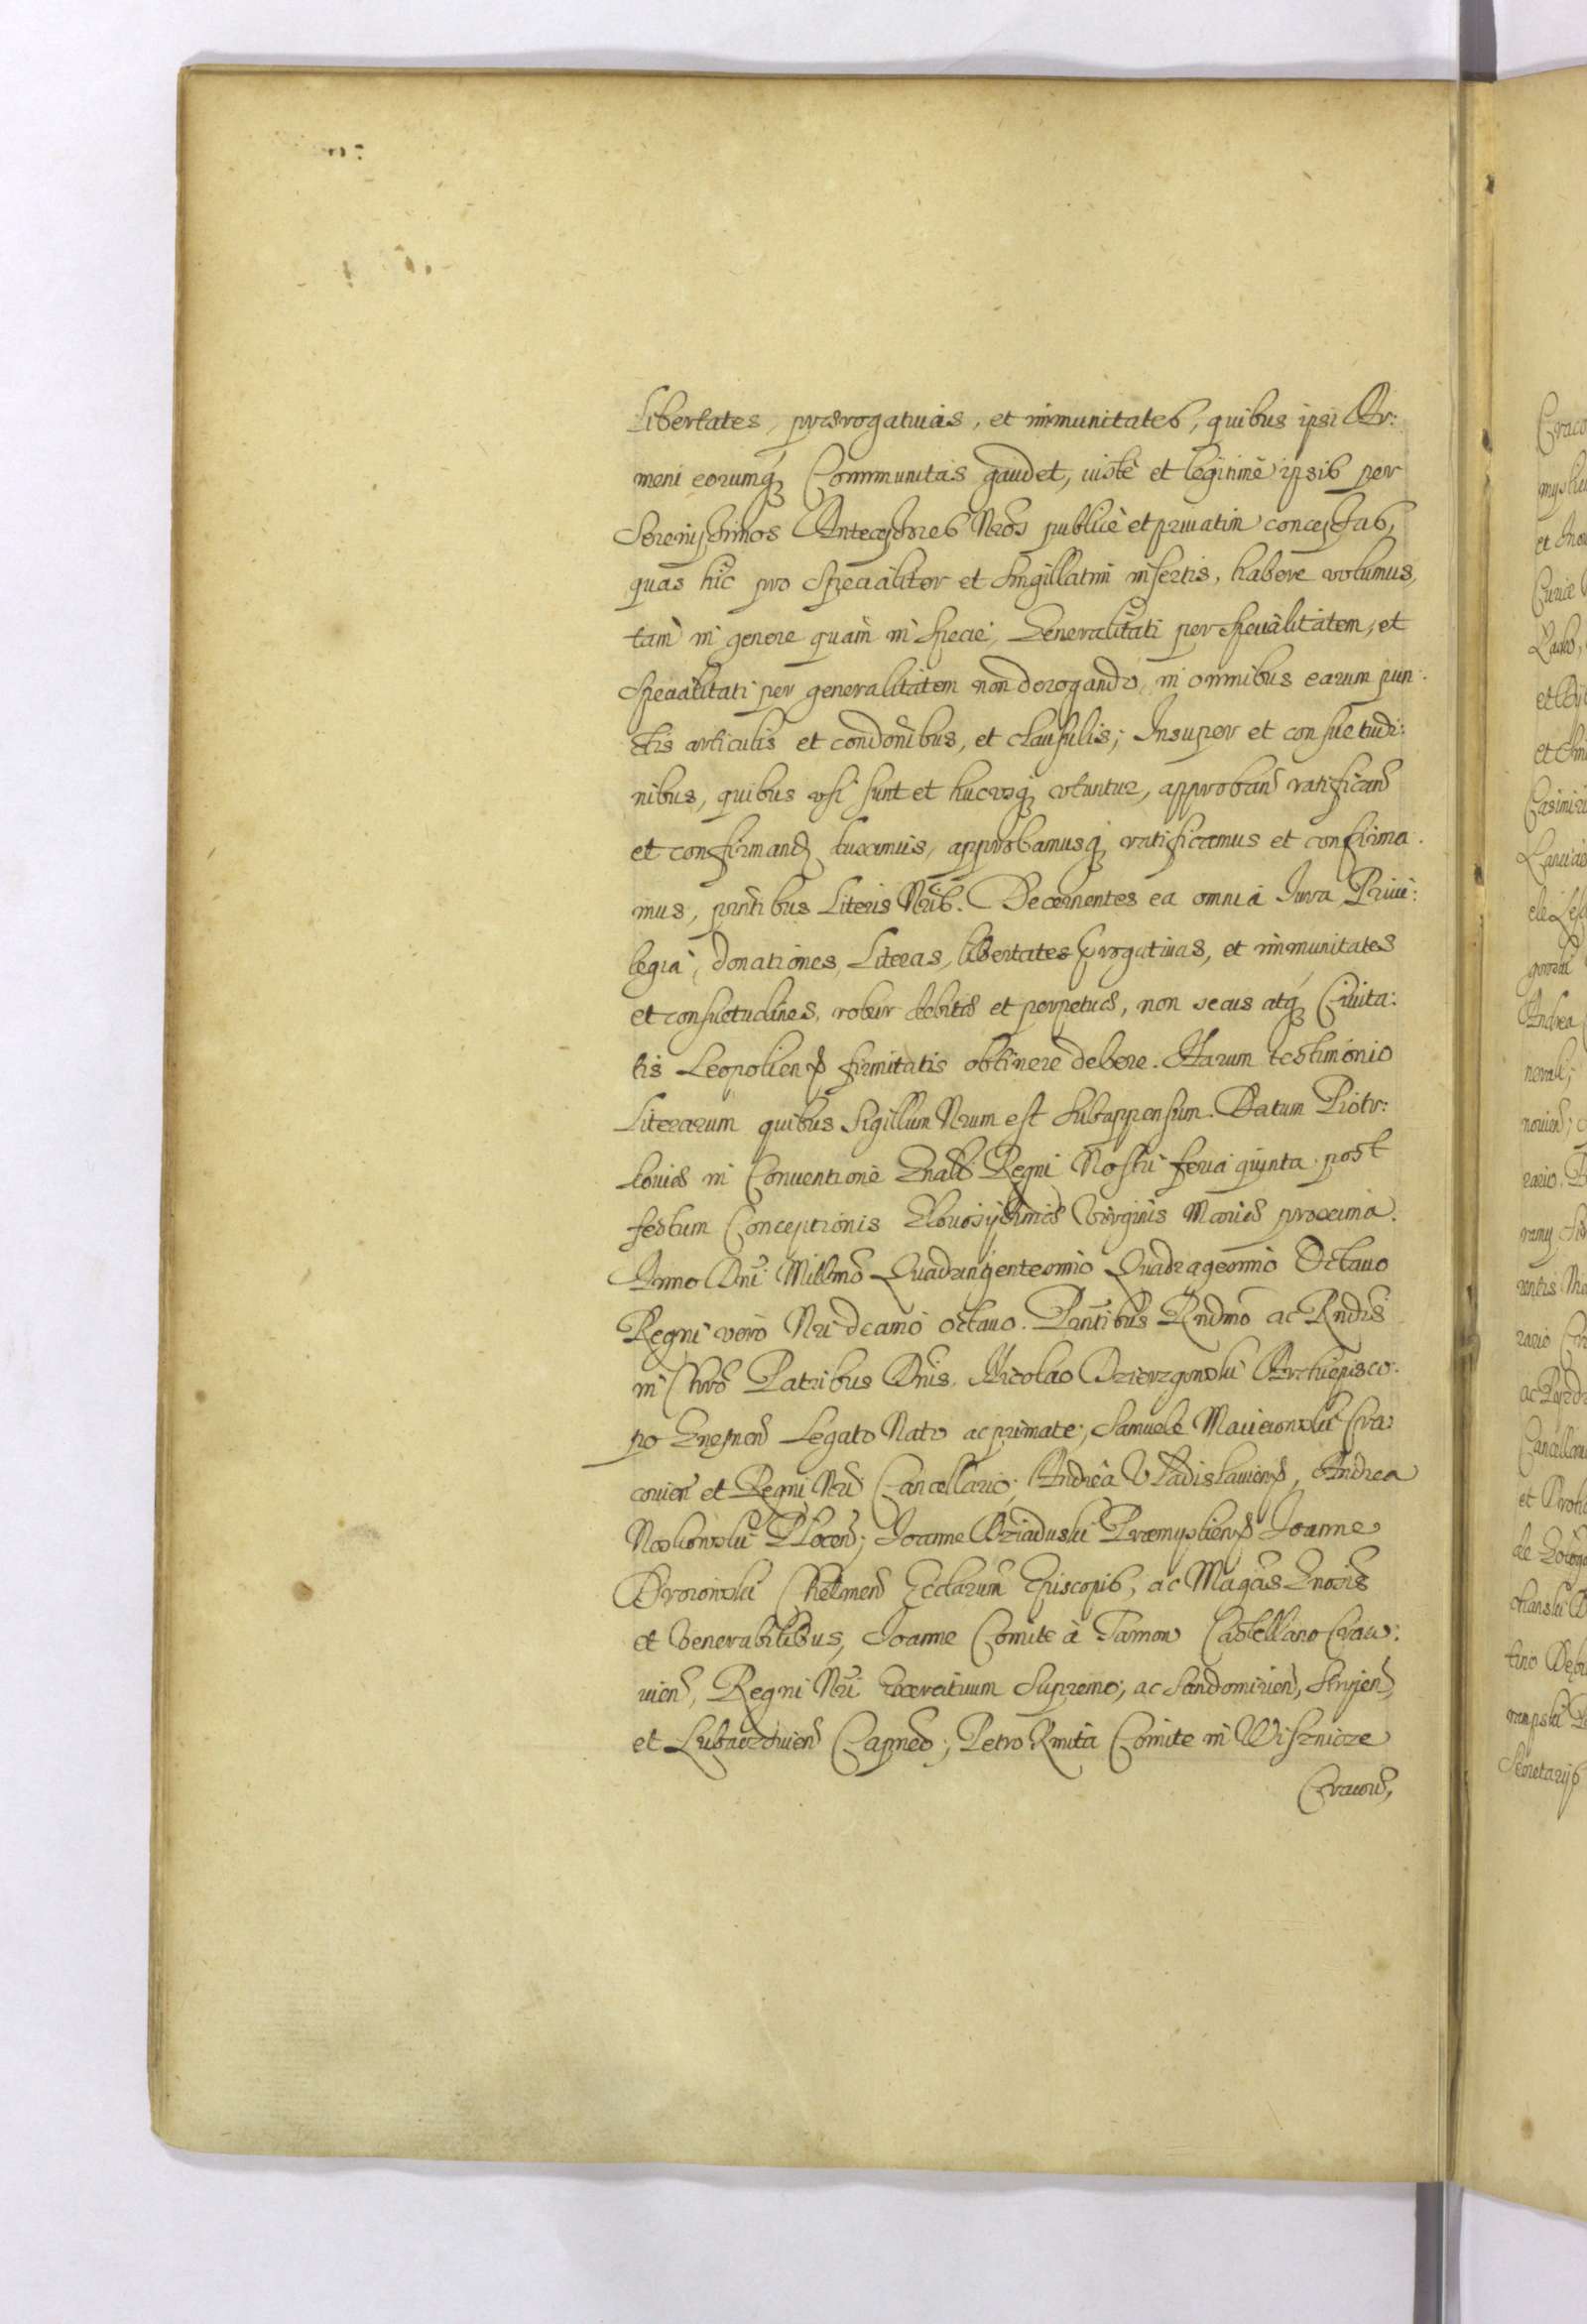 Libertates, prærogatiuas, et immunitates, quibus ipsi Ar:
meni eorumq́ Communitas gaudet, iustè et legitimè ipsis per
Serenissimos Antecessores Nros publicè et priuatim concessas,
quas hîc pro specialiter et singillatim insertis, habere volumus,
tam in genere quàm in specie, Generalitati per specialitatem, et
specialitati per generalitatem non derogando, in omnibus earum pun:
ctis articulis et condonibus, et clausulis; Insuper et consuetudi:
nibus, quibus vsi sunt et hucusq́ vtuntur, approband ratificand
et confirmand duximus, approbamusq́ ratificamus et confirma:
mus, prntibus Literis Nris. Decernentes ea omnia Iura, Priui:
legia, donationes, Literas, libertates prrogatiuas, et immunitates
et consuetudines, robur debitæ et perpetuæ, non secus atq́ Ciuita:
tis Leopolien firmitatis obtinere debere. Harum testimonio
Literarum quibus Sigillum Nrum est subappensum. Datum Piotr:
couiæ in Conuentione Gnali Regni Nostri feria quinta post
festum Conceptionis Glorosissimæ Virginis Mariæ proxima.
Anno Dni Millmo Quadringentesimo Quadragesimo Octauo
Regni verò Nri decimo octauo. Pantibus Rndmo ac Rndis
in Chro Patribus Dnis, Nicolao Dzierzgowski Archiepisco:
po Gnesnen Legato Nato ac primate; Samuele Macieiowski Cra:
couien et Regni Nri Cancellario; Andrea Vladislauien, Andrea
Noskowski Plocen; Joanne Dziaduski Præmyslien Joanne
Droiowski Chelmen Ecclarum Episcopis, ac Magcis Gnosis
et Venerabilibus, Joanne Comite à Tarnow Castellano Craco:
uien, Regni Nri Exercituum Supremo, ac Sandomirien, Stryien,
et Lubaczouien Capneo; Petro Kmita Comite in Wisznicze
Cracouien,